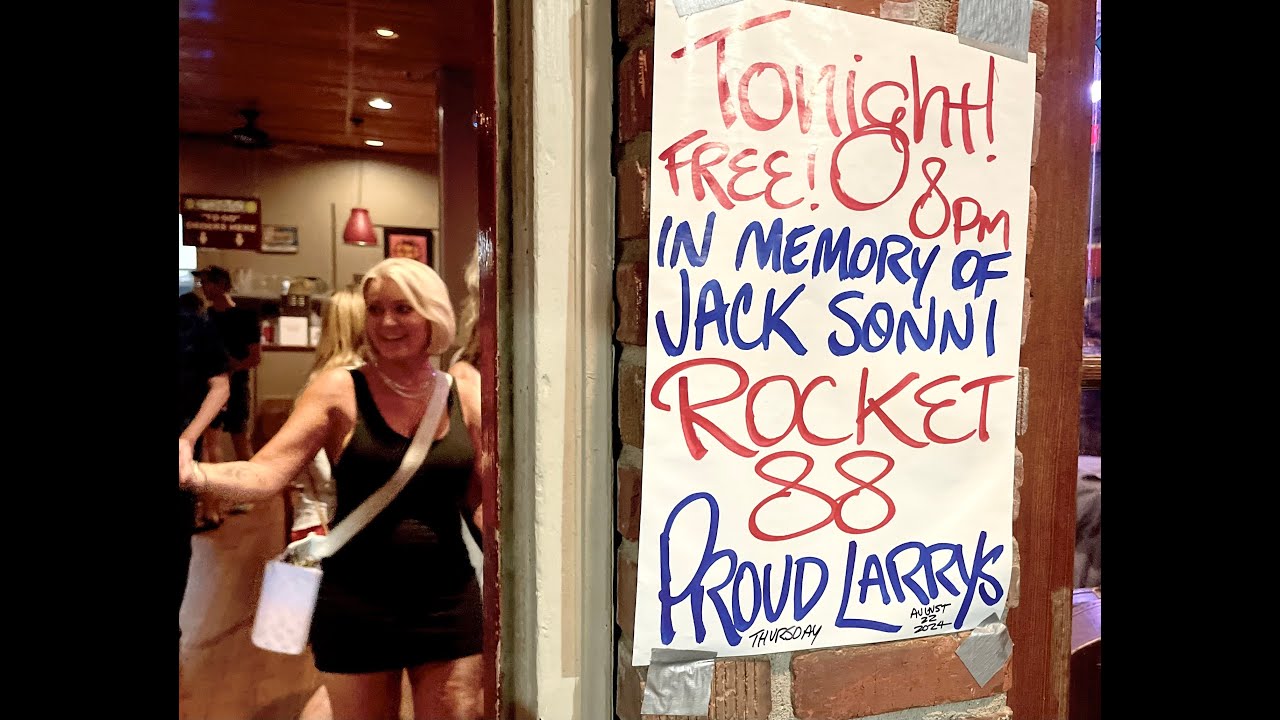 Tonight!
FREE! 8
8pm
IN MEMORY OF
JACK SONNI
ROCKET
88
PROUD LARRYS
THURSDAY
AUGUST
22
2024
"TO-GO"
ORDERS HERE